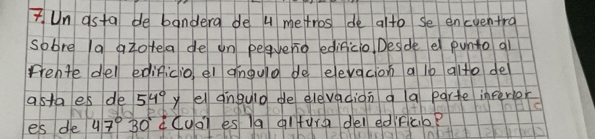 7. Un asta de bandera de 4 metros de alto se encuentra
sobre la azotea de un pequeño edificio. Desde el punto al
frente del edificio, el ángulo de elevación a lo alto del
asta es de 54° y el ángulo de elevación a la parte inferior
es de 47° 30' ¿Cuál es la altura del edificio?